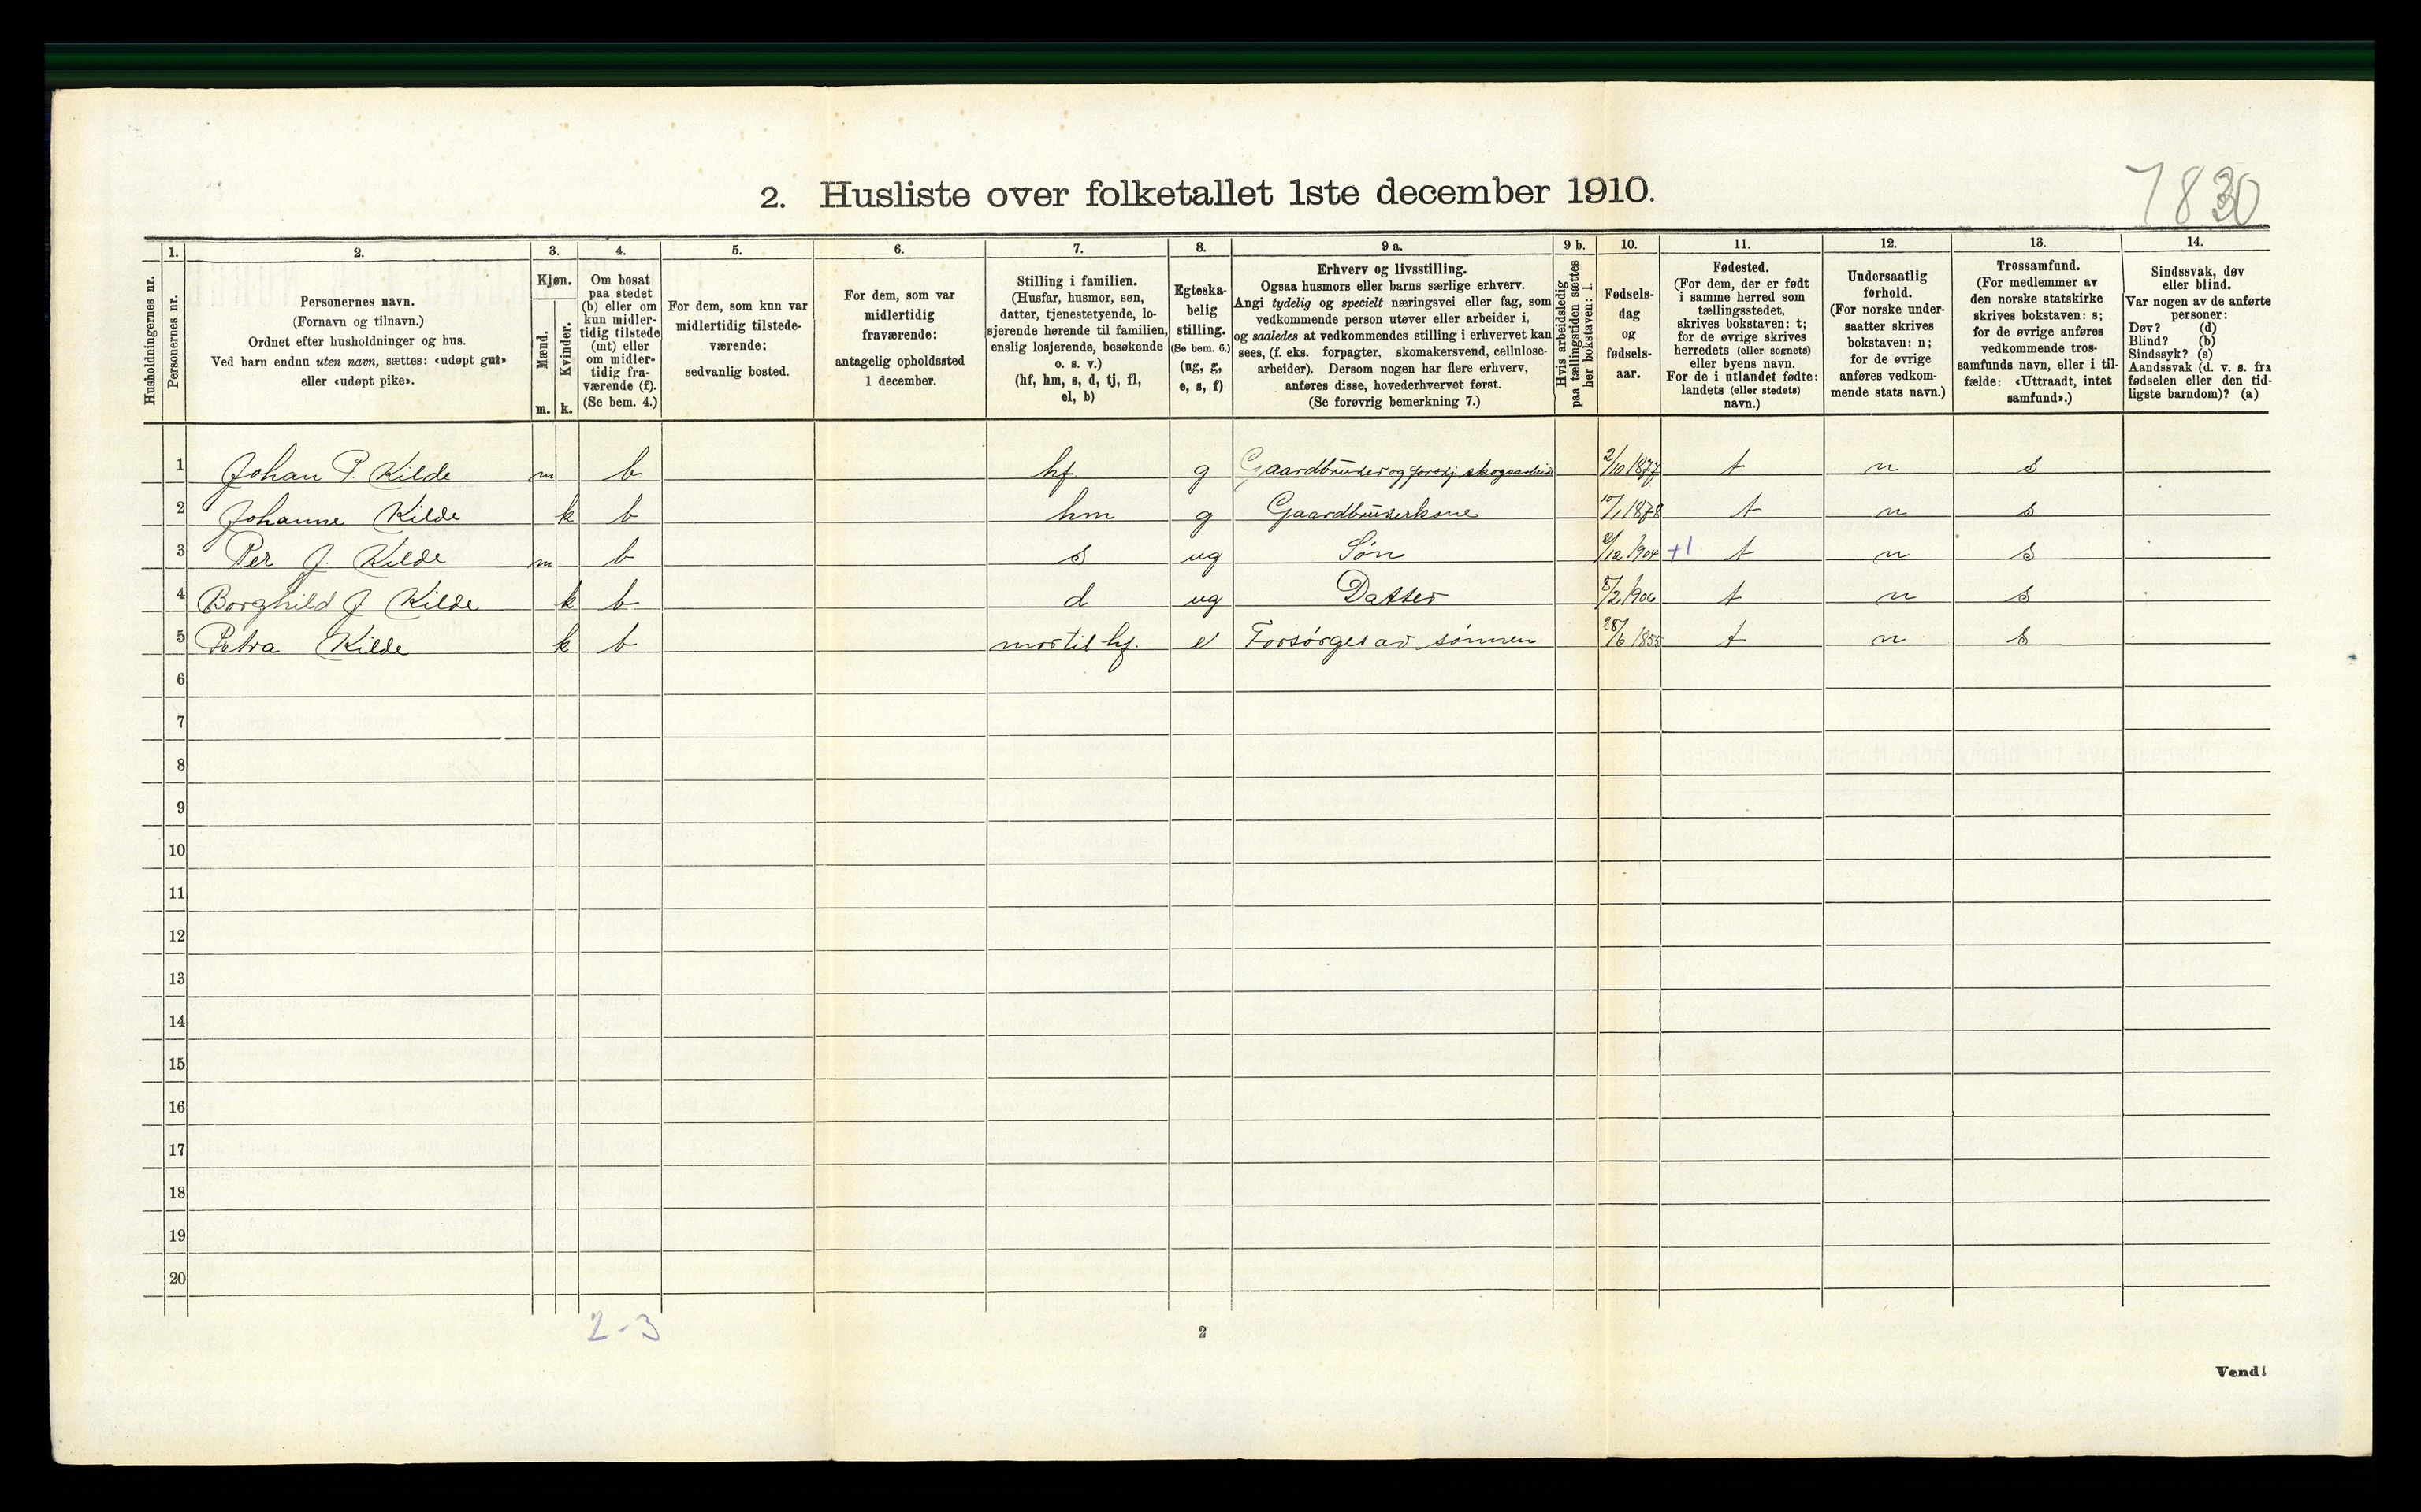 7830
2. Husliste over folketallet 1ste december 1910.
Husholdningernes nr.
1.
Personernes nr.
2.
Personernes navn.
(Fornavn og tilnavn.)
Ordnet efter husholdninger og hus.
Ved barn endnu uten navn, sættes: «udøpt gut»
eller «udøpt pike».
3.
Kjøn.
Mænd.
Kvinder.
m. k.
4.
Om bosat
paa stedet
(b) eller om
kun midler-
tidig tilstede
(mt) eller
om midler-
tidig fra-
værende (f).
(Se bem. 4.)
5.
For dem, som kun var
midlertidig tilstede-
værende:
sedvanlig bosted.
6.
For dem, som var
midlertidig
fraværende:
antagelig opholdssted
1 december.
7.
Stilling i familien.
(Husfar, husmor, søn,
datter, tjenestetyende, lo-
sjerende hørende til familien,
enslig losjerende, besøkende
o. s. v.)
(hf, hm, s, d, tj, fl,
el, b)
8.
Egteska-
belig
stilling.
(Se bem. 6.)
(ug, g,
e, s, f)
9 a.
Erhverv og livsstilling.
Ogsaa husmors eller barns særlige erhverv.
Angi tydelig og specielt næringsvei eller fag, som
vedkommende person utøver eller arbeider i,
og saaledes at vedkommendes stilling i erhvervet kan
sees, (f. eks. forpagter, skomakersvend, cellulose-
arbeider). Dersom nogen har flere erhverv,
anføres disse, hovederhvervet først.
(Se forøvrig bemerkning 7.)
9 b.
Hvis arbeidsledig
paa tællingstiden sættes
her bokstaven: l.
10.
Fødsels-
dag
og
fødsels-
aar.
11.
Fødested.
(For dem, der er født
i samme herred som
tællingsstedet,
skrives bokstaven: t;
for de øvrige skrives
herredets (eller sognets)
eller byens navn.
For de i utlandet fødte:
landets (eller stedets)
navn.)
12.
Undersaatlig
forhold.
(For norske under-
saatter skrives
bokstaven: n;
for de øvrige
anføres vedkom-
mende stats navn.)
13.
Trossamfund.
(For medlemmer av
den norske statskirke
skrives bokstaven: s;
for de øvrige anføres
vedkommende tros-
samfunds navn, eller i til-
fælde: «Uttraadt, intet
samfund».)
14.
Sindssvak, døv
eller blind.
Var nogen av de anførte
personer:
Døv? (d)
Blind? (b)
Sindssyk? (s)
Aandssvak (d. v. s. fra
fødselen eller den tid-
ligste barndom)? (a)
1 Johan P. Kilde m b hf g Gaardbruker og skogsarbeide 2/10 1877 t n s
2 Johanne Kilde k b hm g Gaardbrukerkone 10/1 1878 t n s
3 Per J. Kilde m b s ug Søn 2/12 1904 +1 t n s
4 Borghild J Kilde k b d ug Datter 8/2 1906 t n s
5 Petra Kilde k b mor til hf. e Forsørges av sønnen 28/6 1855 t n s
6
7
8
9
10
11
12
13
14
15
16
17
18
19
20
2-3
2
Vend!